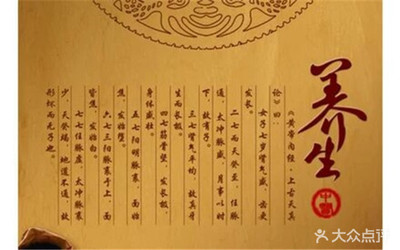 养生
中医
《黄帝内经·上古天真
论》曰:
女子七岁肾气盛,齿更
发长。
二七而天癸至,任脉
通,太冲脉盛,月事以时
下,故有子。
三七肾气平均,故真牙
生而长极。
四七筋骨坚,发长极,
身体盛壮。
五七阳明脉衰,面始
焦,发始堕。
六七三阳脉衰于上,面
皆焦,发始白。
七七任脉虚,太冲脉衰
少,天癸竭,地道不通,故
形坏而无子也。
大众点评